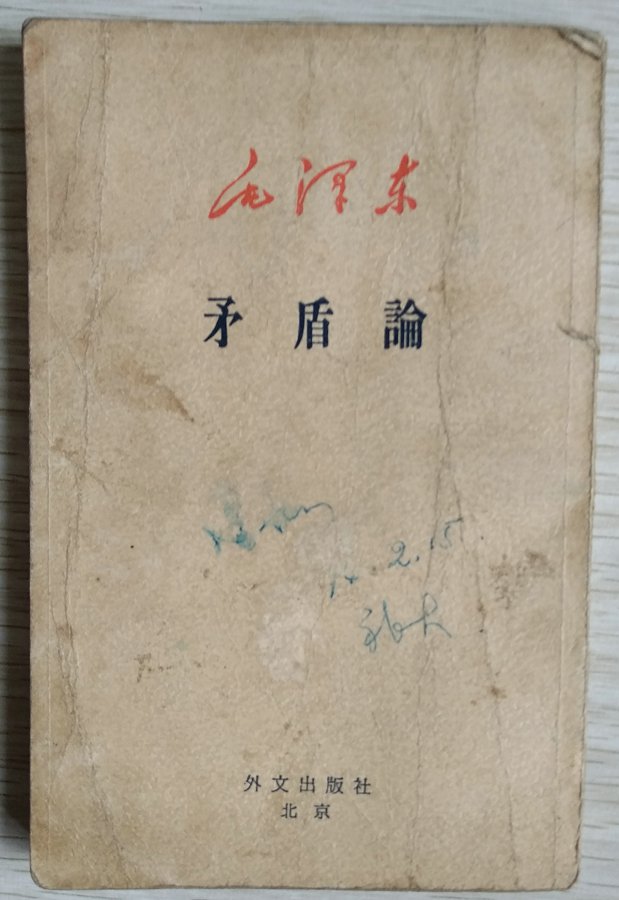 毛泽东
矛盾論
74.2.15.
外文出版社
北京